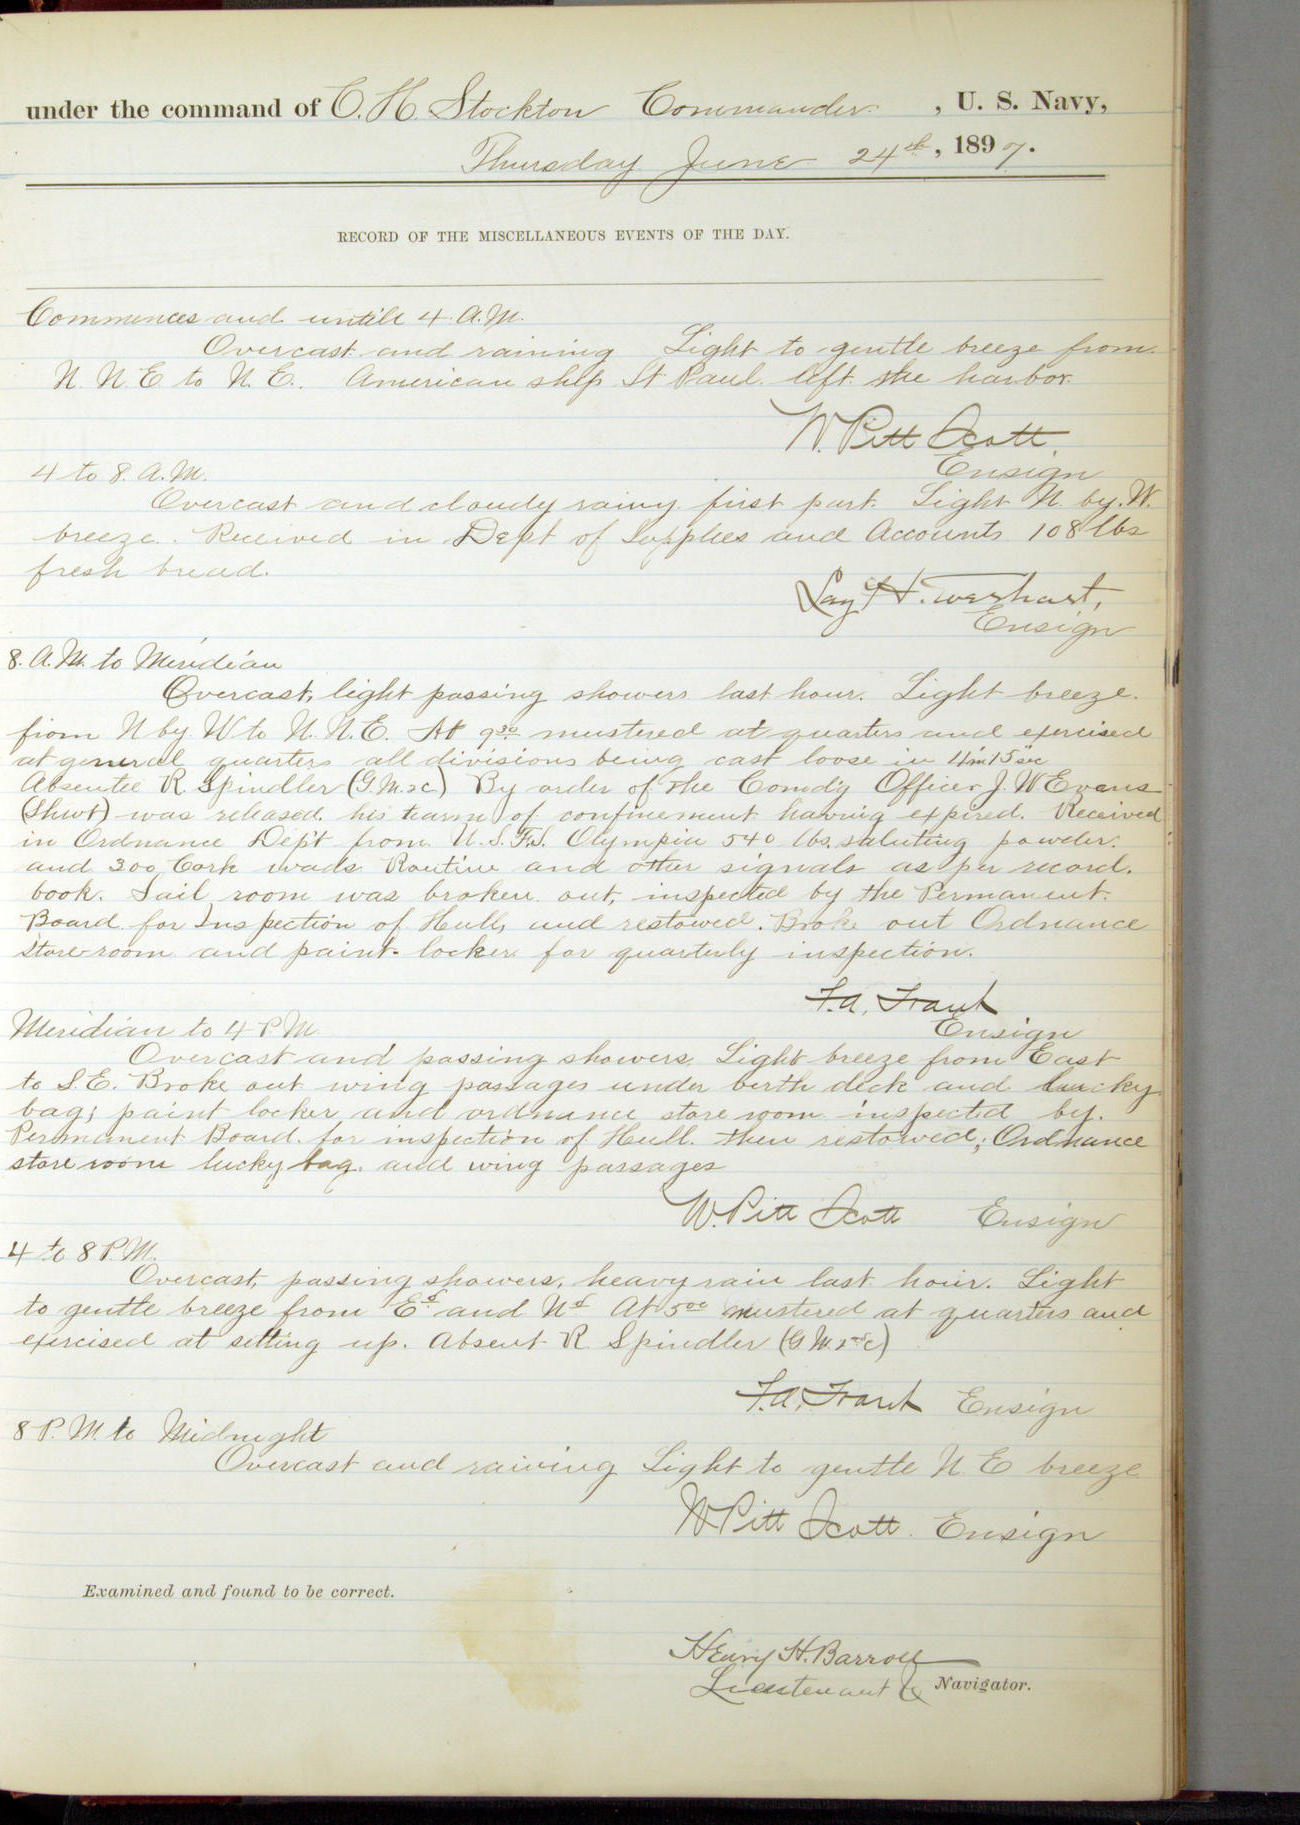 under the command of C. H. Stockton Commander, U. S. Navy,
Thursday June 24th, 1897.
RECORD OF THE MISCELLANEOUS EVENTS OF THE DAY.
Commences and untill 4 A.M.
Overcast and raining Light to gentle breeze from
N. N. E to N. E. American ship St Paul left the harbor.
W. Pitt Scott,
Ensign
4 to 8. A.M.
Overcast and cloudy rainy first part. Light N. by. W.
breeze. Received in Dept of Supplies and Accounts 108 lbs
fresh bread.
Lay H. Everhart,
Ensign
8. A.M. to Meridian
Overcast, light passing showers last hour. Light breeze.
from N by W to N. N. E. At 9.30 mustered at quarters and exercised
at general quarters all divisions being cast loose in 4m 15sec
Absentee R. Spindler (G.M.2c) By order of the Comd'g Officer J. W Evans
(Shwt) was released his term of confinement having expired. Received
in Ordnance Dep't from U. S. F.S. Olympia 540 lbs. saluting powder.
and 300 Cork wads. Routine and other signals as per record.
book. Sail room was broken out, inspected by the Permanent.
Board for Inspection of Hull, and restowed. Broke out Ordnance
store-room and paint-locker for quarterly inspection.
F. A. Traut
Ensign
Meridian to 4 P. M.
Overcast and passing showers. Light breeze from East
to S. E. Broke out wing passages under berth deck and lucky
bag; paint locker and ordnance store room inspected by.
Permanent Board for inspection of Hull. then restowed; Ordnance
store room lucky bag. and wing passages
W. Pitt Scott Ensign
4 to 8 P. M.
Overcast, passing showers, heavy rain last hour. Light
to gentle breeze from Ed and Nd At 5.00 mustered at quarters and
exercised at setting up. Absent R Spindler (G M 2nd c)
F. A. Traut Ensign
8 P. M. to Midnight
Overcast and raining Light to gentle N E breeze
W Pitt Scott. Ensign
Examined and found to be correct.
Henry H. Barroll
Lieutenant & Navigator.